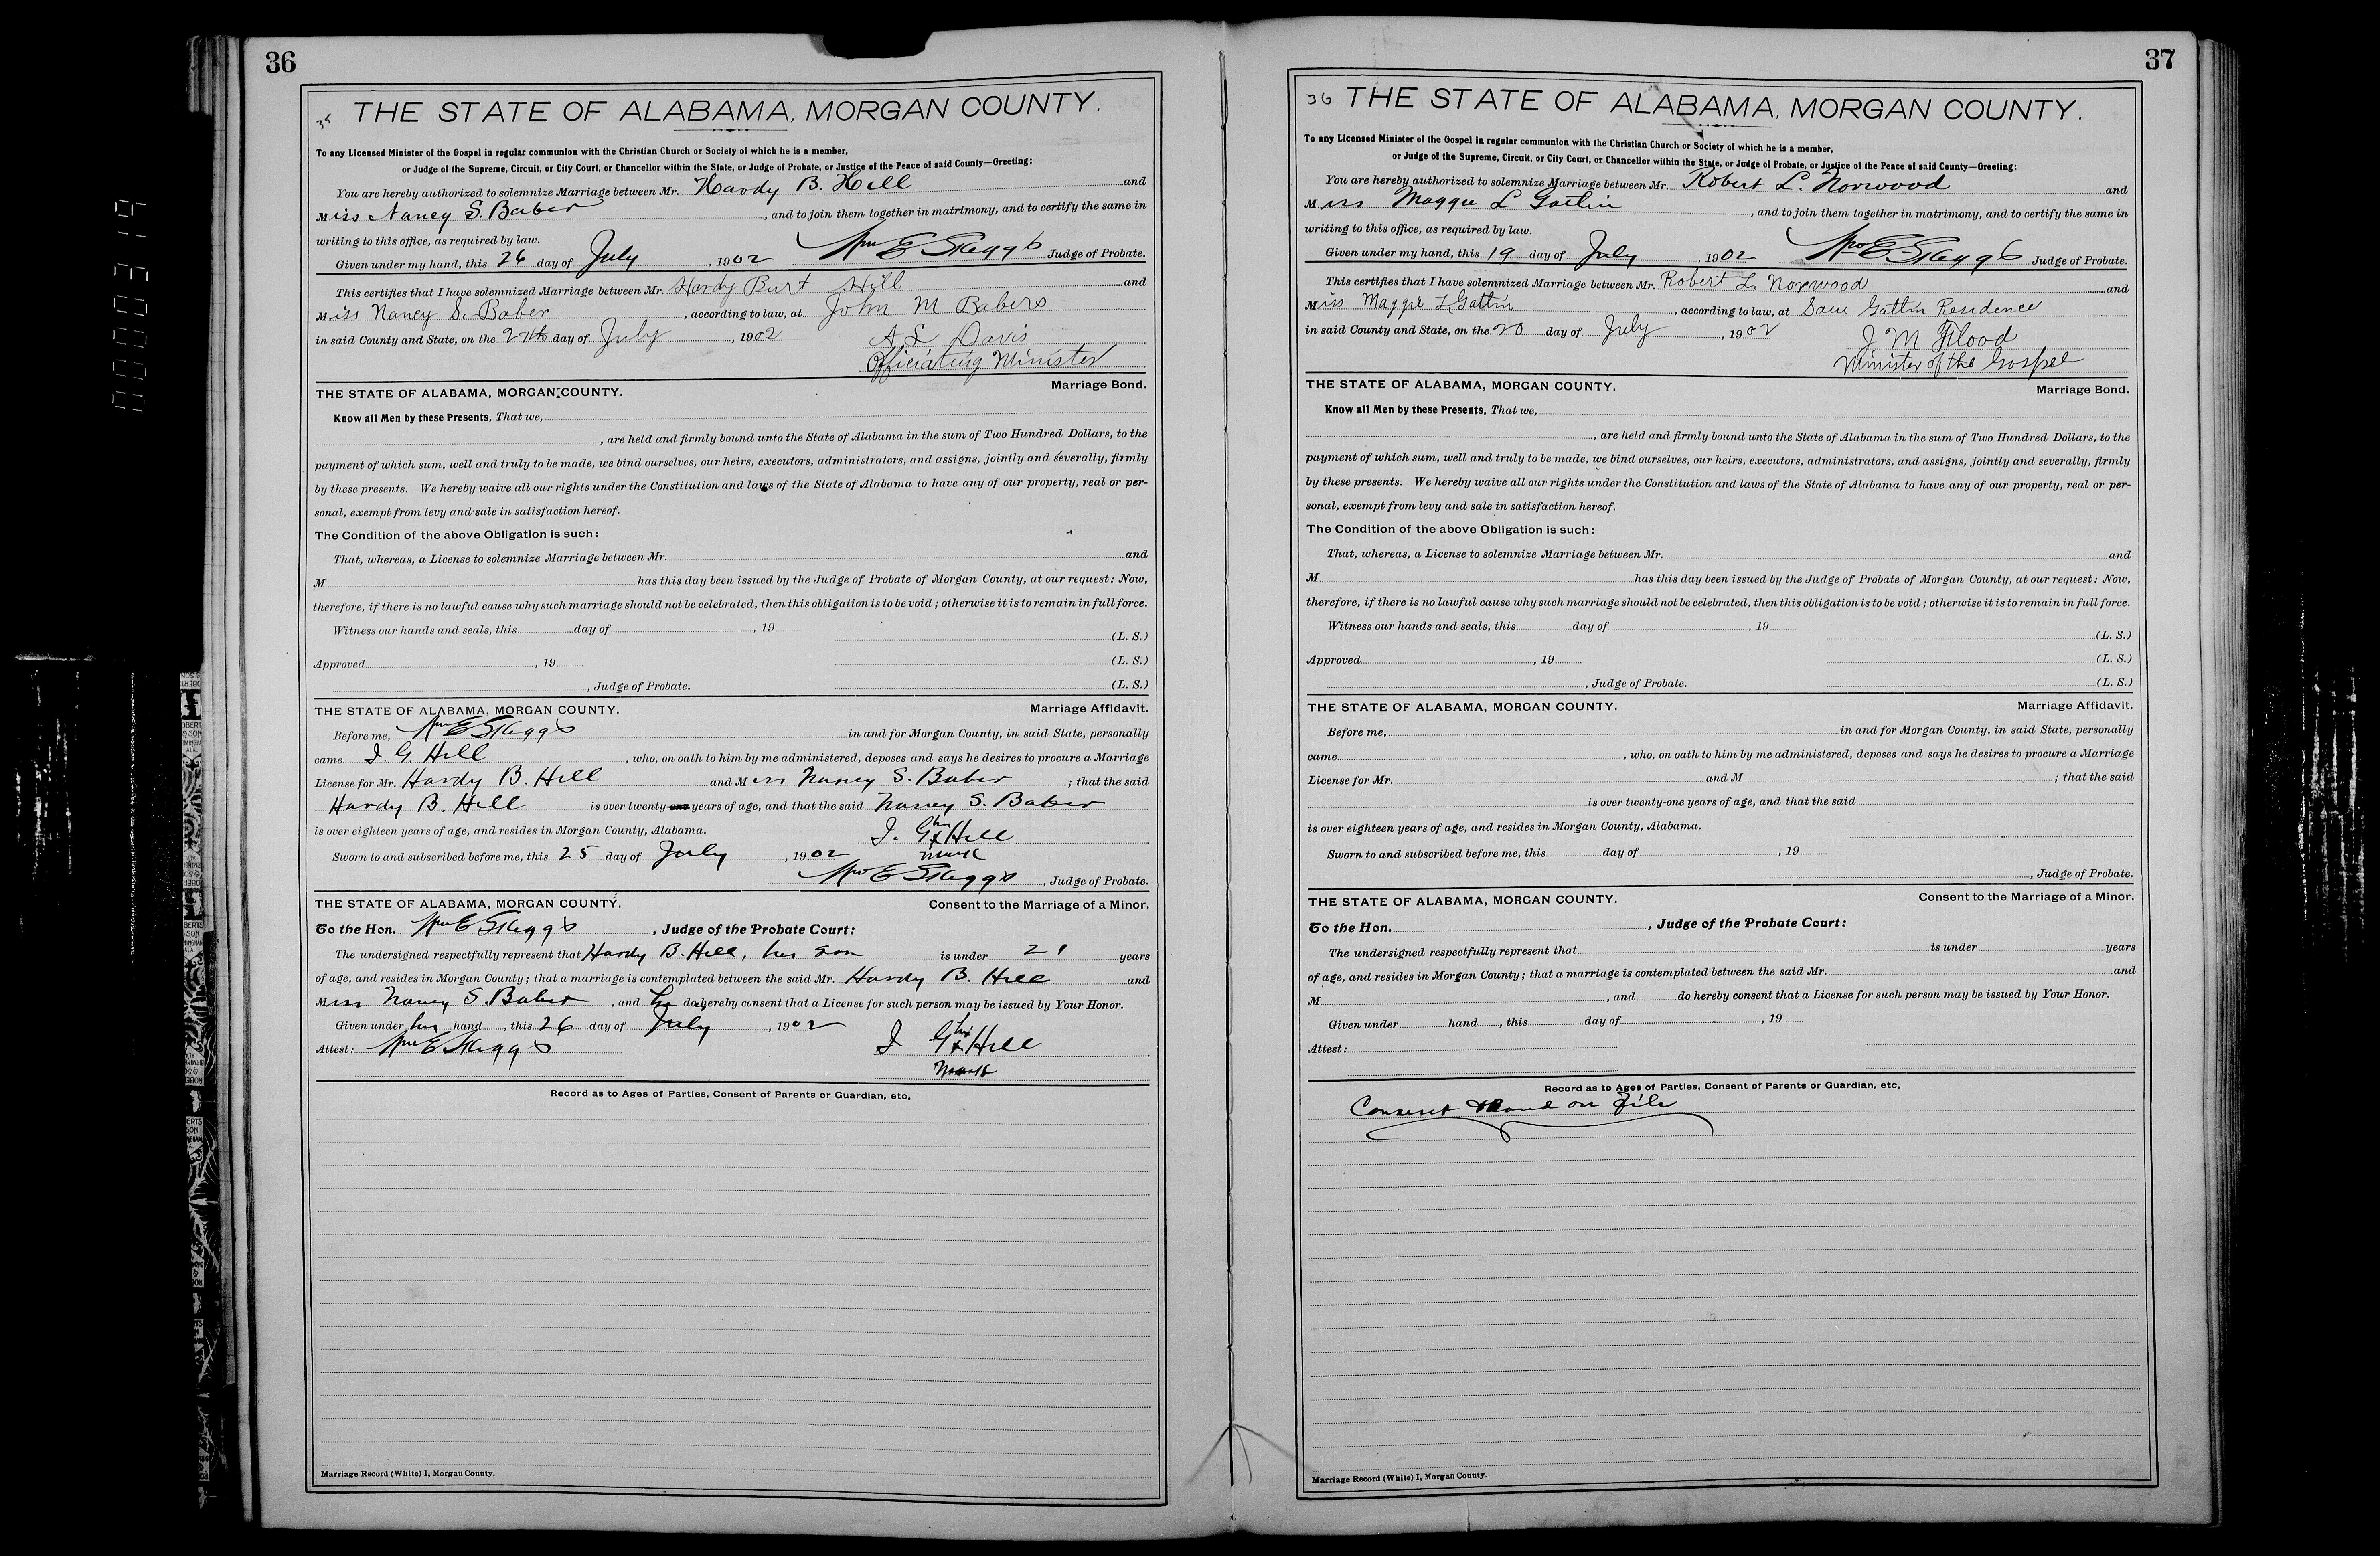 36
THE STATE OF ALABAMA, MORGAN COUNTY.
To any Licensed Minister of the Gospel in regular communion with the Christian Church or Society of which he is a member,
or Judge of the Supreme, Circuit, or City Court, or Chancellor within the State, or Judge of Probate, or Justice of the Peace of said County—Greeting:
You are hereby authorized to solemnize Marriage between Mr. Hardy B. Hill and
Miss Nancy S. Baber, and to join them together in matrimony, and to certify the same in
writing to this office, as required by law.
Given under my hand, this 26 day of July, 1902 Wm E Skeggs Judge of Probate.
This certifies that I have solemnized Marriage between Mr. Hardy Burt Hill and
Miss Nancy S. Baber, according to law, at John M Babers
in said County and State, on the 27th day of July, 1902 A L Davis
Officiating Minister
THE STATE OF ALABAMA, MORGAN COUNTY. Marriage Bond.
Know all Men by these Presents, That we,
, are held and firmly bound unto the State of Alabama in the sum of Two Hundred Dollars, to the
payment of which sum, well and truly to be made, we bind ourselves, our heirs, executors, administrators, and assigns, jointly and severally, firmly
by these presents. We hereby waive all our rights under the Constitution and laws of the State of Alabama to have any of our property, real or per-
sonal, exempt from levy and sale in satisfaction hereof.
The Condition of the above Obligation is such:
That, whereas, a License to solemnize Marriage between Mr. and
M has this day been issued by the Judge of Probate of Morgan County, at our request: Now,
therefore, if there is no lawful cause why such marriage should not be celebrated, then this obligation is to be void; otherwise it is to remain in full force.
Witness our hands and seals, this day of , 19 (L. S.)
Approved , 19 (L. S.)
, Judge of Probate. (L. S.)
THE STATE OF ALABAMA, MORGAN COUNTY. Marriage Affidavit.
Before me, Wm E Skeggs in and for Morgan County, in said State, personally
came J. G. Hill, who, on oath to him by me administered, deposes and says he desires to procure a Marriage
License for Mr. Hardy B. Hill and Miss Nancy S. Baber; that the said
Hardy B. Hill is over twenty-one years of age, and that the said Nancy S. Baber
is over eighteen years of age, and resides in Morgan County, Alabama. J. G. his x Hill
Sworn to and subscribed before me, this 25 day of July, 1902 mark
Wm E Skeggs, Judge of Probate.
THE STATE OF ALABAMA, MORGAN COUNTY. Consent to the Marriage of a Minor.
To the Hon. Wm E Skeggs, Judge of the Probate Court:
The undersigned respectfully represent that Hardy B. Hill, his son is under 21 years
of age, and resides in Morgan County; that a marriage is contemplated between the said Mr. Hardy B. Hill and
Miss Nancy S. Baber, and he do hereby consent that a License for such person may be issued by Your Honor.
Given under his hand, this 26 day of July, 1902
Attest: Wm E Skeggs J G his x Hill
mark
Record as to Ages of Parties, Consent of Parents or Guardian, etc.
Marriage Record (White) I, Morgan County.
37
36 THE STATE OF ALABAMA, MORGAN COUNTY.
To any Licensed Minister of the Gospel in regular communion with the Christian Church or Society of which he is a member,
or Judge of the Supreme, Circuit, or City Court, or Chancellor within the State, or Judge of Probate, or Justice of the Peace of said County—Greeting:
You are hereby authorized to solemnize Marriage between Mr. Robert L. Norwood and
Miss Maggie L Gatlin, and to join them together in matrimony, and to certify the same in
writing to this office, as required by law.
Given under my hand, this 19 day of July 1902 Wm E Skeggs Judge of Probate.
This certifies that I have solemnized Marriage between Mr. Robert L. Norwood and
Miss Maggie L Gatlin, according to law, at Sam Gatlin Residence
in said County and State, on the 20 day of July, 1902 J M Flood
Minister of the Gospel
THE STATE OF ALABAMA, MORGAN COUNTY. Marriage Bond.
Know all Men by these Presents, That we,
, are held and firmly bound unto the State of Alabama in the sum of Two Hundred Dollars, to the
payment of which sum, well and truly to be made, we bind ourselves, our heirs, executors, administrators, and assigns, jointly and severally, firmly
by these presents. We hereby waive all our rights under the Constitution and laws of the State of Alabama to have any of our property, real or per-
sonal, exempt from levy and sale in satisfaction hereof.
The Condition of the above Obligation is such:
That, whereas, a License to solemnize Marriage between Mr. and
M has this day been issued by the Judge of Probate of Morgan County, at our request: Now,
therefore, if there is no lawful cause why such marriage should not be celebrated, then this obligation is to be void; otherwise it is to remain in full force.
Witness our hands and seals, this day of , 19 (L. S.)
Approved , 19 (L. S.)
, Judge of Probate. (L. S.)
THE STATE OF ALABAMA, MORGAN COUNTY. Marriage Affidavit.
Before me, in and for Morgan County, in said State, personally
came , who, on oath to him by me administered, deposes and says he desires to procure a Marriage
License for Mr. and M ; that the said
is over twenty-one years of age, and that the said
is over eighteen years of age, and resides in Morgan County, Alabama.
Sworn to and subscribed before me, this day of , 19
, Judge of Probate.
THE STATE OF ALABAMA, MORGAN COUNTY. Consent to the Marriage of a Minor.
To the Hon. , Judge of the Probate Court:
The undersigned respectfully represent that is under years
of age, and resides in Morgan County; that a marriage is contemplated between the said Mr. and
M , and do hereby consent that a License for such person may be issued by Your Honor.
Given under hand , this day of , 19
Attest:
Record as to Ages of Parties, Consent of Parents or Guardian, etc.
Consent Bond on File
Marriage Record (White) I, Morgan County.
0000319